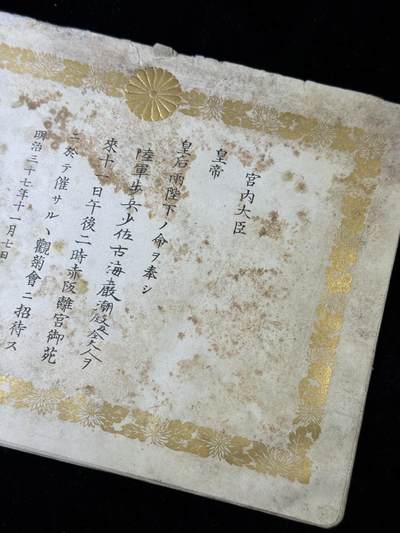 宮内大臣
皇帝
皇后両陛下ノ命ヲ奉シ
陸軍歩兵少佐古海巌潮殿仝夫人ヲ
來十一日午後二時赤阪離宮御苑
ニ於テ催サルヽ觀菊會ニ招待ス
明治三十七年十一月七日